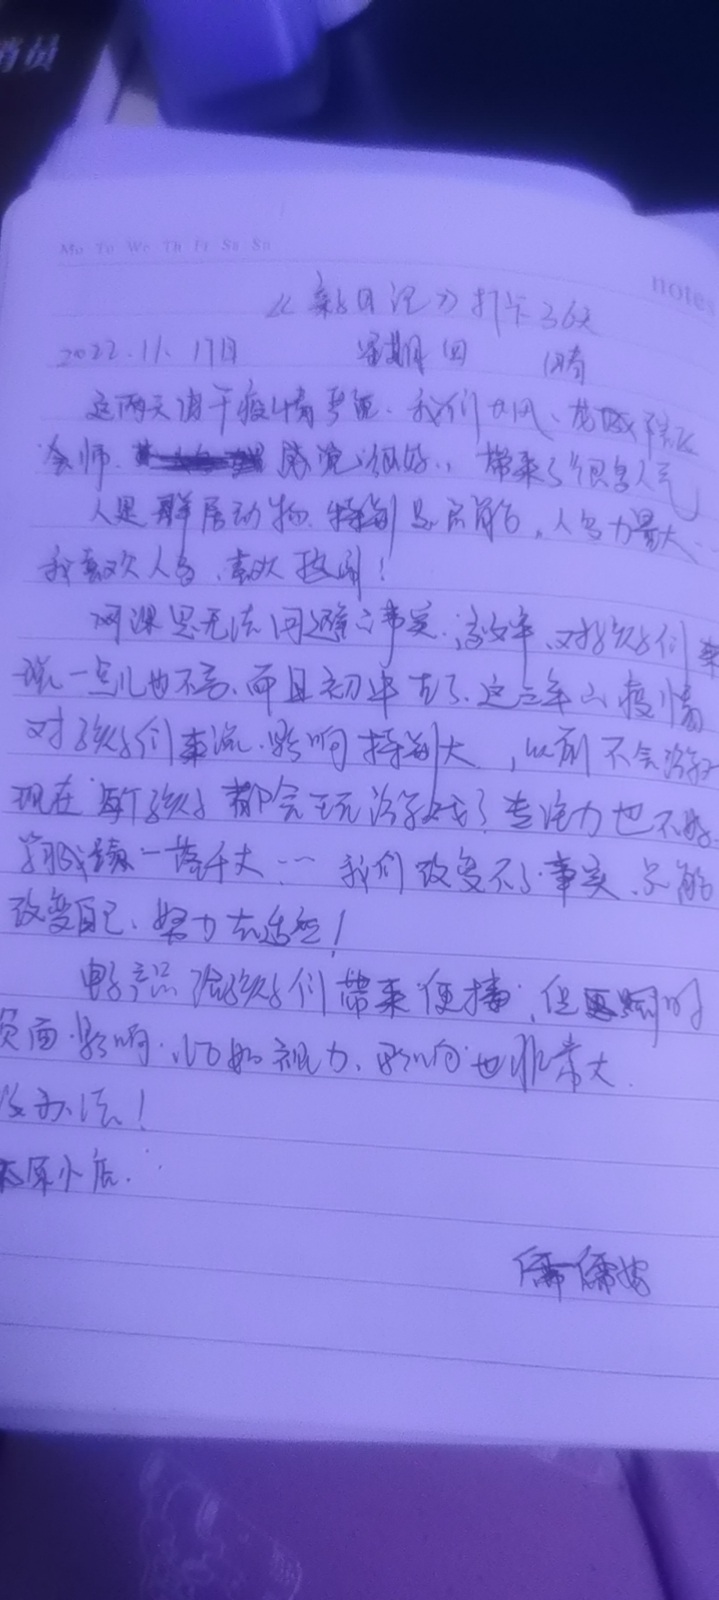 消员
Mo Tu We Th Fr Sa Su
notes
《新日记》打卡36天
2022.11.17日 星期四 晴
这两天由于疫情严重,我们大风、龙城
会师 感觉很好,带来了很多人气
人是群居动物,特别是后能,人多力量大
我喜欢人多,喜欢热闹!
网课是无法回避的事实,这些年,对孩子们来
说一点儿也不高,而且初中去了,这三年的疫情
对孩子们来说,影响特别大,以前不会游戏
现在每个孩子都会玩游戏了,专注力也不好
学习成绩一落千丈……我们改变不了事实,只能
改变自己,努力去适应!
电子产品给孩子们带来便捷,但同时
负面影响,比如视力,影响也非常大
没办法!
太原小店.
儒儒妈